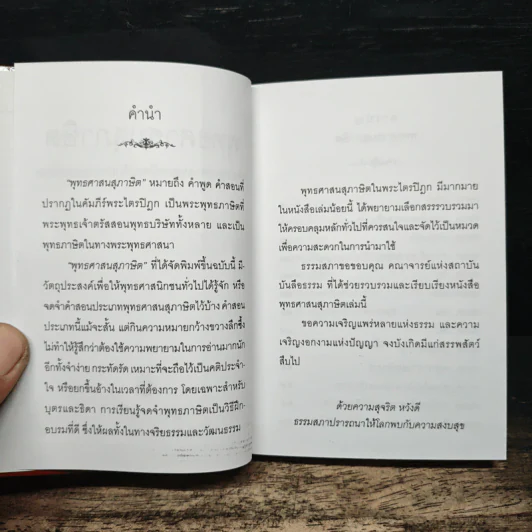 คำนำ
"พุทธศาสนสุภาษิต" หมายถึง คำพูด คำสอนที่
ปรากฏในคัมภีร์พระไตรปิฎก เป็นพระพุทธภาษิตที่
พระพุทธเจ้าตรัสสอนพุทธบริษัททั้งหลาย และเป็น
พุทธภาษิตในทางพระพุทธศาสนา
"พุทธศาสนสุภาษิต" ที่ได้จัดพิมพ์ขึ้นฉบับนี้ มี-
วัตถุประสงค์เพื่อให้พุทธศาสนิกชนทั่วไปได้รู้จัก หรือ
จดจำคำสอนประเภทพุทธศาสนสุภาษิตไว้บ้าง คำสอน
ประเภทนี้แม้จะสั้น แต่กินความหมายกว้างขวางลึกซึ้ง
ไม่ทำให้รู้สึกว่าต้องใช้ความพยายามในการอ่านมากนัก
อีกทั้งจำง่าย กระทัดรัด เหมาะที่จะถือไว้เป็นคติประจำ-
ใจ หรือยกขึ้นอ้างในเวลาที่ต้องการ โดยเฉพาะสำหรับ
บุตรและธิดา การเรียนรู้จดจำพุทธภาษิตเป็นวิธีฝึก-
อบรมที่ดี ซึ่งให้ผลทั้งในทางจริยธรรมและวัฒนธรรม
พุทธศาสนสุภาษิตในพระไตรปิฎก มีมากมาย
ในหนังสือเล่มน้อยนี้ ได้พยายามเลือกสรรรวบรวมมา
ให้ครอบคลุมหลักทั่วไปที่ควรสนใจและจัดไว้เป็นหมวด
เพื่อความสะดวกในการนำมาใช้
ธรรมสภาขอขอบคุณ คณาจารย์แห่งสถาบัน
บันลือธรรม ที่ได้ช่วยรวบรวมและเรียบเรียงหนังสือ
พุทธศาสนสุภาษิตเล่มนี้
ขอความเจริญแพร่หลายแห่งธรรม และความ
เจริญงอกงามแห่งปัญญา จงบังเกิดมีแก่สรรพสัตว์
สืบไป
ด้วยความสุจริต หวังดี
ธรรมสภาปรารถนาให้โลกพบกับความสงบสุข